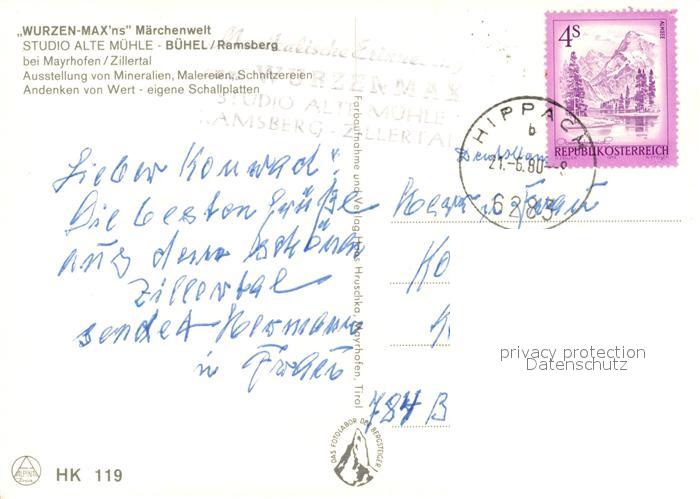 „WURZEN-MAX'ns" Märchenwelt
STUDIO ALTE MÜHLE - BÜHEL/Ramsberg
bei Mayrhofen/Zillertal
Ausstellung von Mineralien, Malereien, Schnitzereien
Andenken von Wert - eigene Schallplatten
Musikalische Erinnerung
WURZENMAX
STUDIO ALTE MÜHLE
RAMSBERG - ZILLERTAL
4s
ALMSEE
REPUBLIK ÖSTERREICH
HIPPACH
b
21.-6.80-8
6283
Lieber Konrad!
Die besten Grüße
aus dem schönen
Zillertal
sendet Hermann
u Frau
Farbaufnahme und Verlag Hans Hruschka, Mayrhofen, Tirol
Deutschland
Herr u Frau
Ko
K
784 B
privacy protection
Datenschutz
DAS FOTOLABOR DER BERGSTEIGER
ALPINA
HK 119